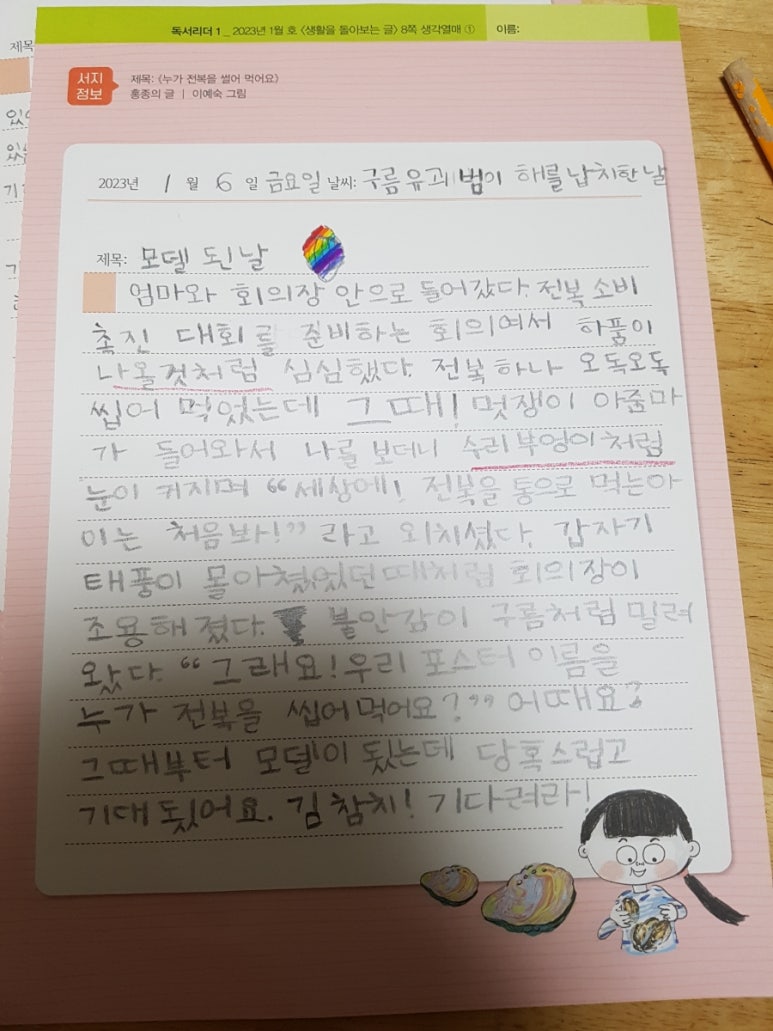 독서리더 1 _ 2023년 1월 호 <생활을 돌아보는 글> 8쪽 생각열매 ① 이름:
서지
정보
제목: 《누가 전복을 썰어 먹어요》
홍종의 글 | 이예숙 그림
2023년 1 월 6 일 금요일 날씨: 구름유괴범이 해를 납치한날
제목: 모델 된날
엄마와 회의장 안으로 들어갔다. 전복 소비
촉진 대회를 준비하는 회의여서 하품이
나올것처럼 심심했다. 전복 하나 오독오독
씹어 먹었는데 그때! 멋쟁이 아줌마
가 들어와서 나를 보더니 수리부엉이처럼
눈이 커지며 “세상에! 전복을 통으로 먹는아
이는 처음봐!” 라고 외치셨다. 갑자기
태풍이 몰아쳤었던때처럼 회의장이
조용해졌다. 불안감이 구름처럼 밀려
왔다. “그래요! 우리 포스터 이름을
누가 전복을 씹어먹어요?” 어때요?
그때부터 모델이 됬는데 당혹스럽고
기대됬어요. 김참치! 기다려라!
제목
있
있
기